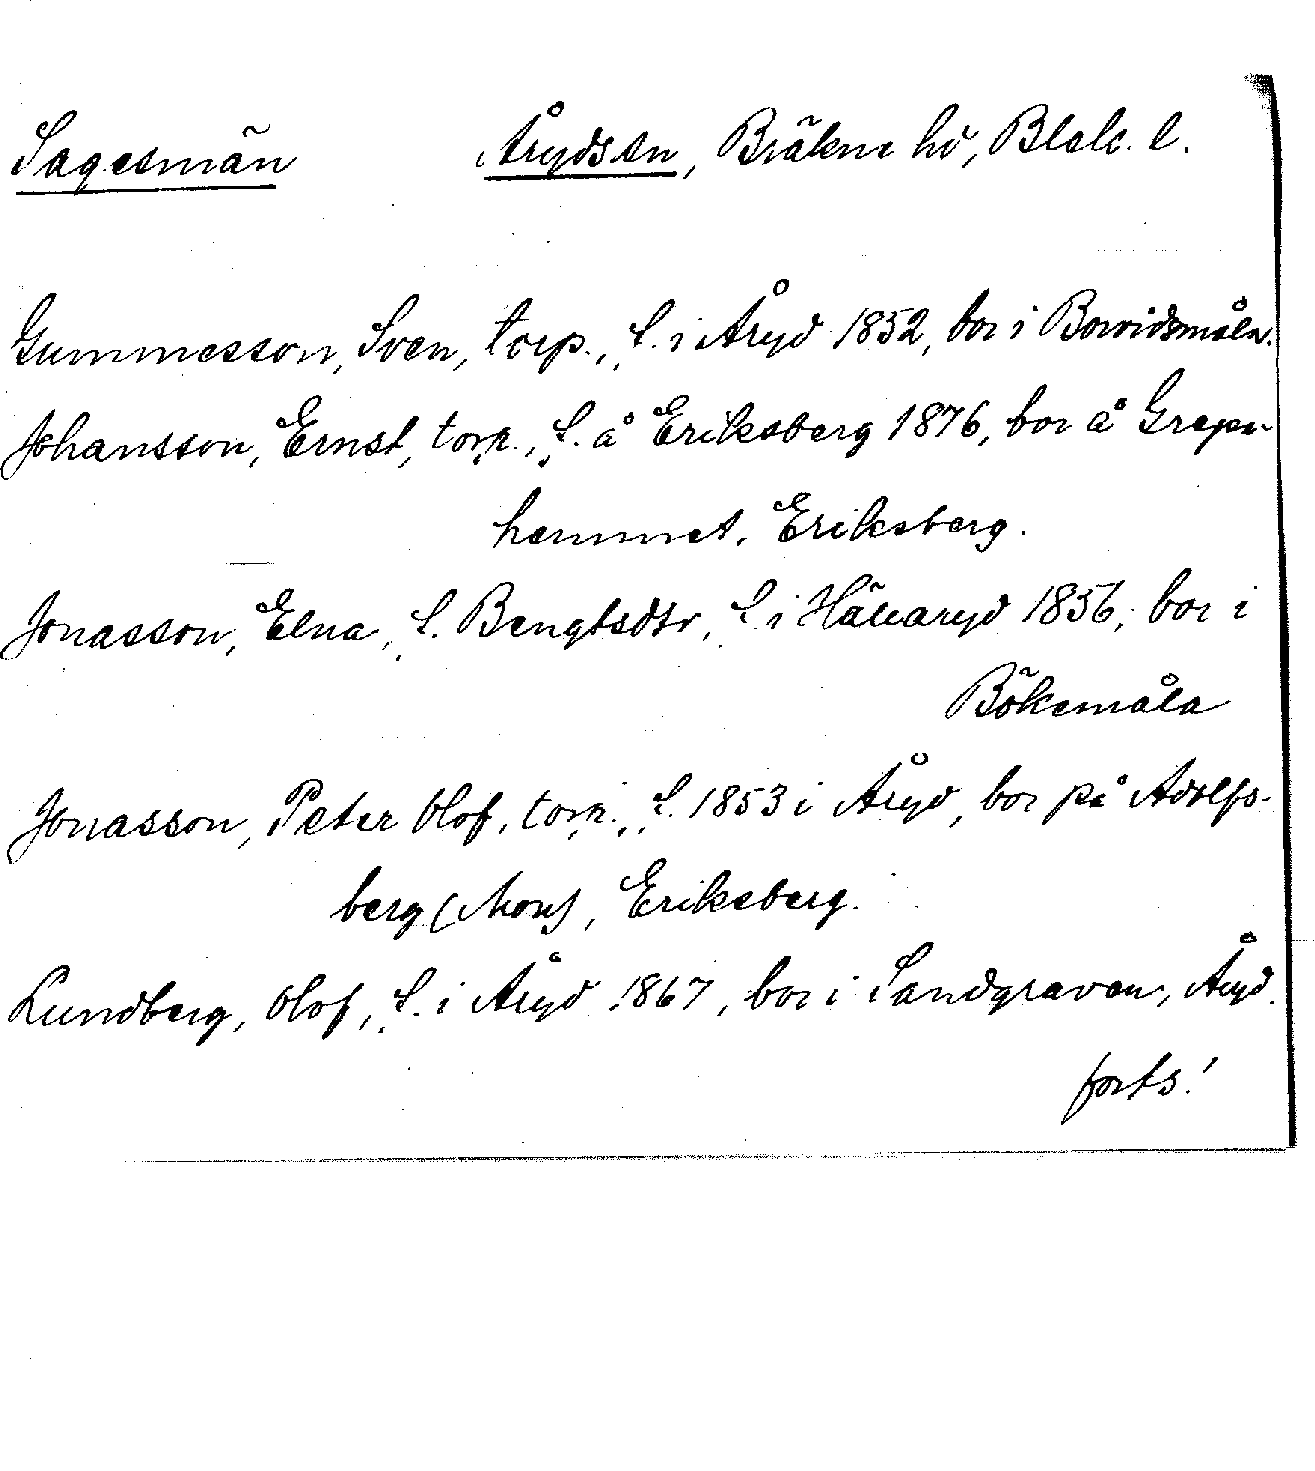 Sagesmän Åryds sn, Bräkne hd, Blek. l.
Gummesson, Sven, torp., f. i Åryd 1852, bor i Borridsmåla.
Johansson, Ernst, torp., f. å Eriksberg 1876, bor å Grepa-
hemmet, Eriksberg.
Jonasson, Elna, f. Bengtsdtr, f. i Hällaryd 1856, bor i
Bökemåla
Jonasson, Peter Olof, torp., f. 1853 i Åryd, bor på Adolfs-
berg (Mon), Eriksberg.
Lundberg, Olof, f. i Åryd 1867, bor i Sandgraven, Åryd.
forts!